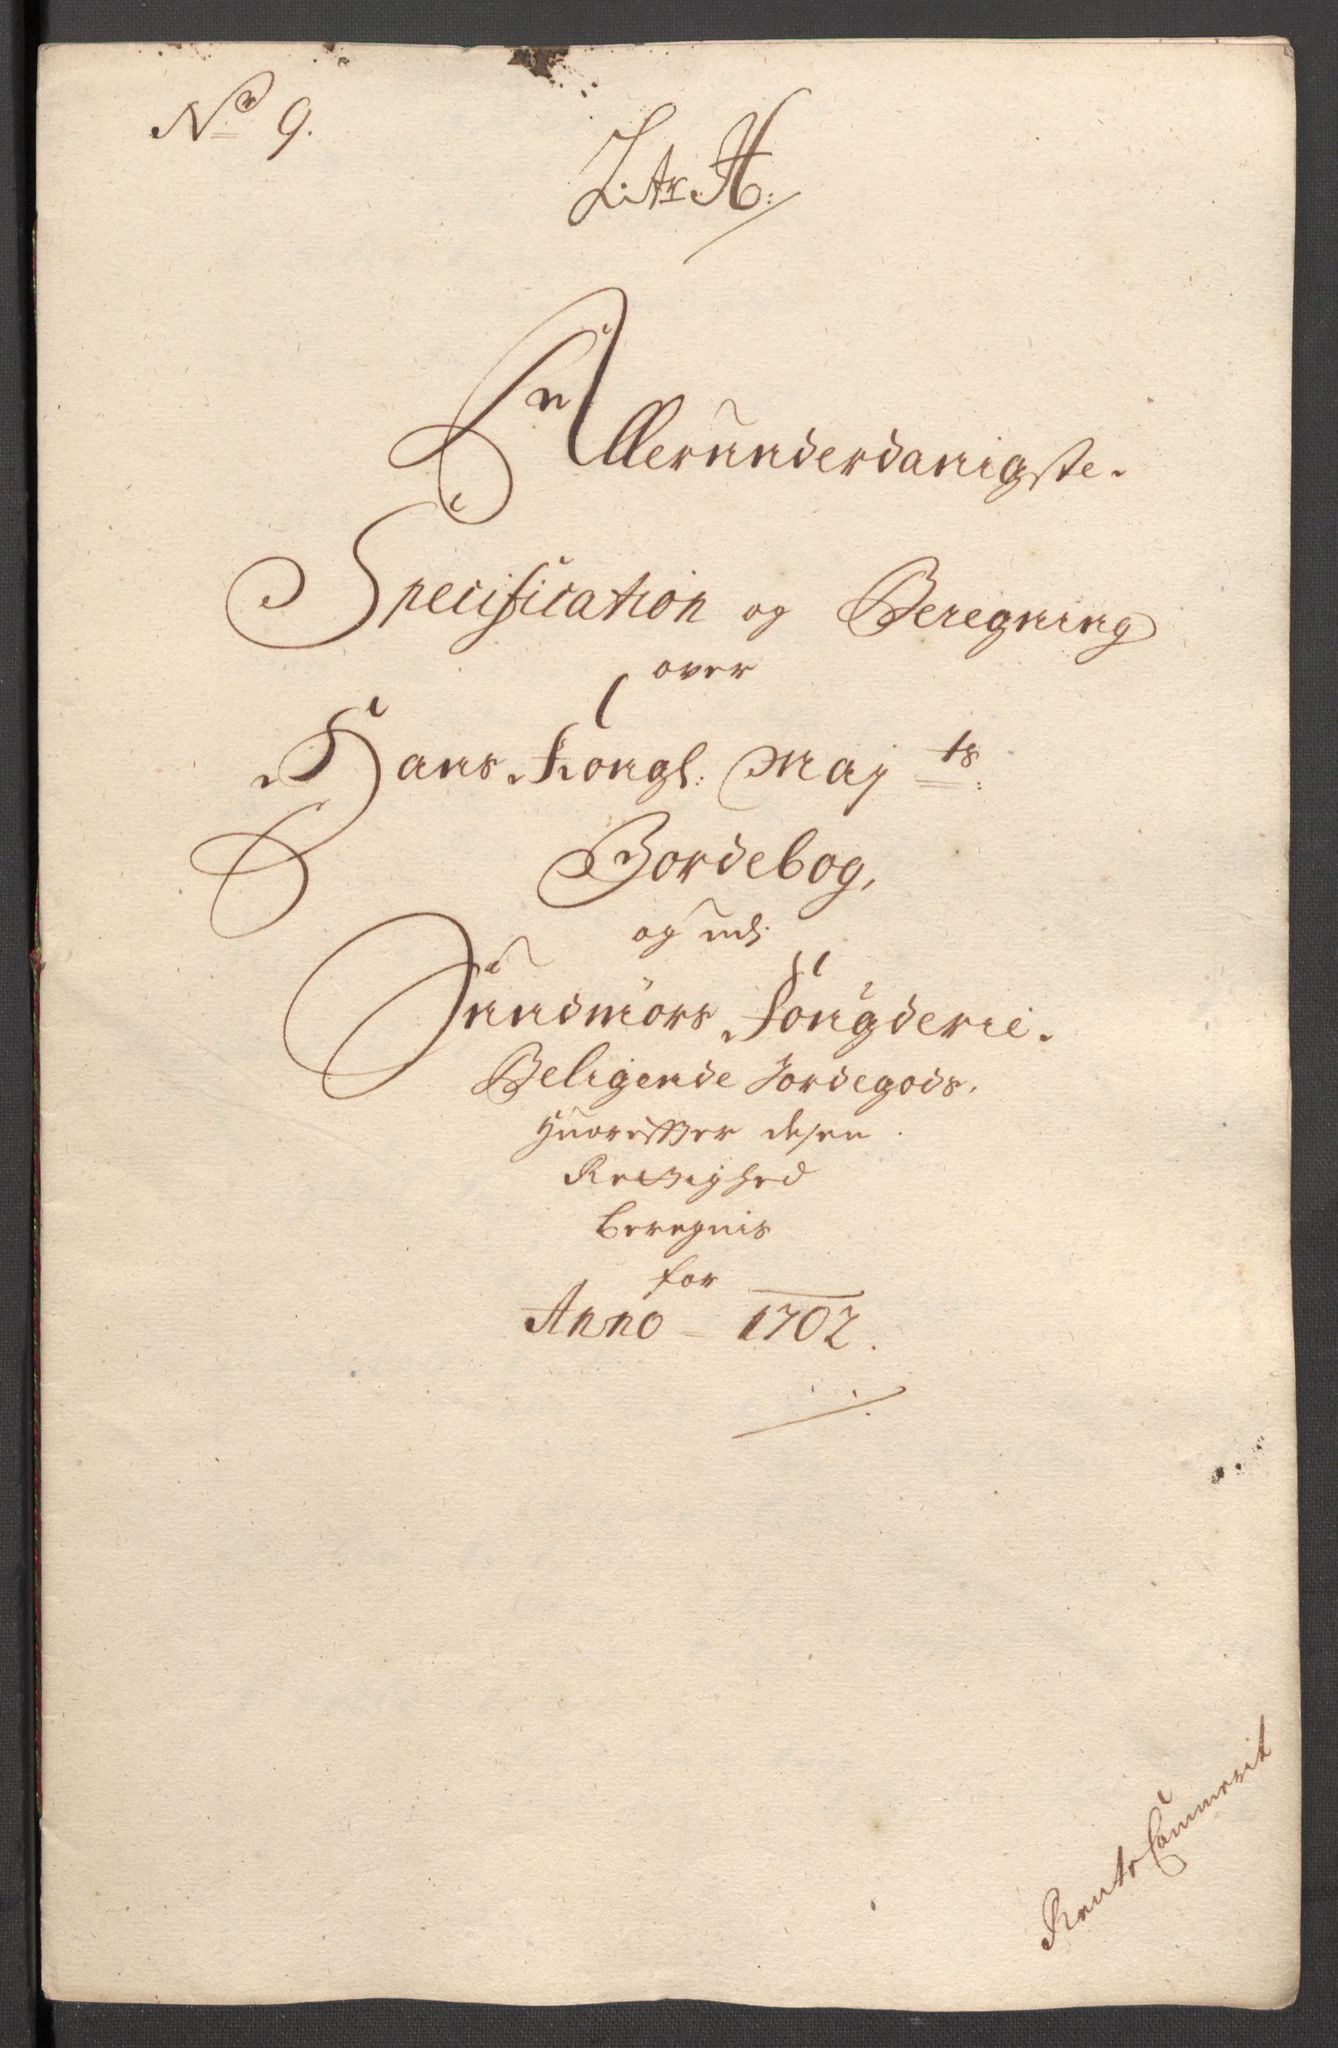 No 9.
Litr H:
Allerunderdanigste
Specification og Beregning
over
Hans Kongl: Maj ts:
Jordebog,
og udj
Sundmörs Fougderie.
Beliggende Jordegods.
Huorefter desen
Rettighed
beregnis
for
Anno 1702.
Rente Cammerit